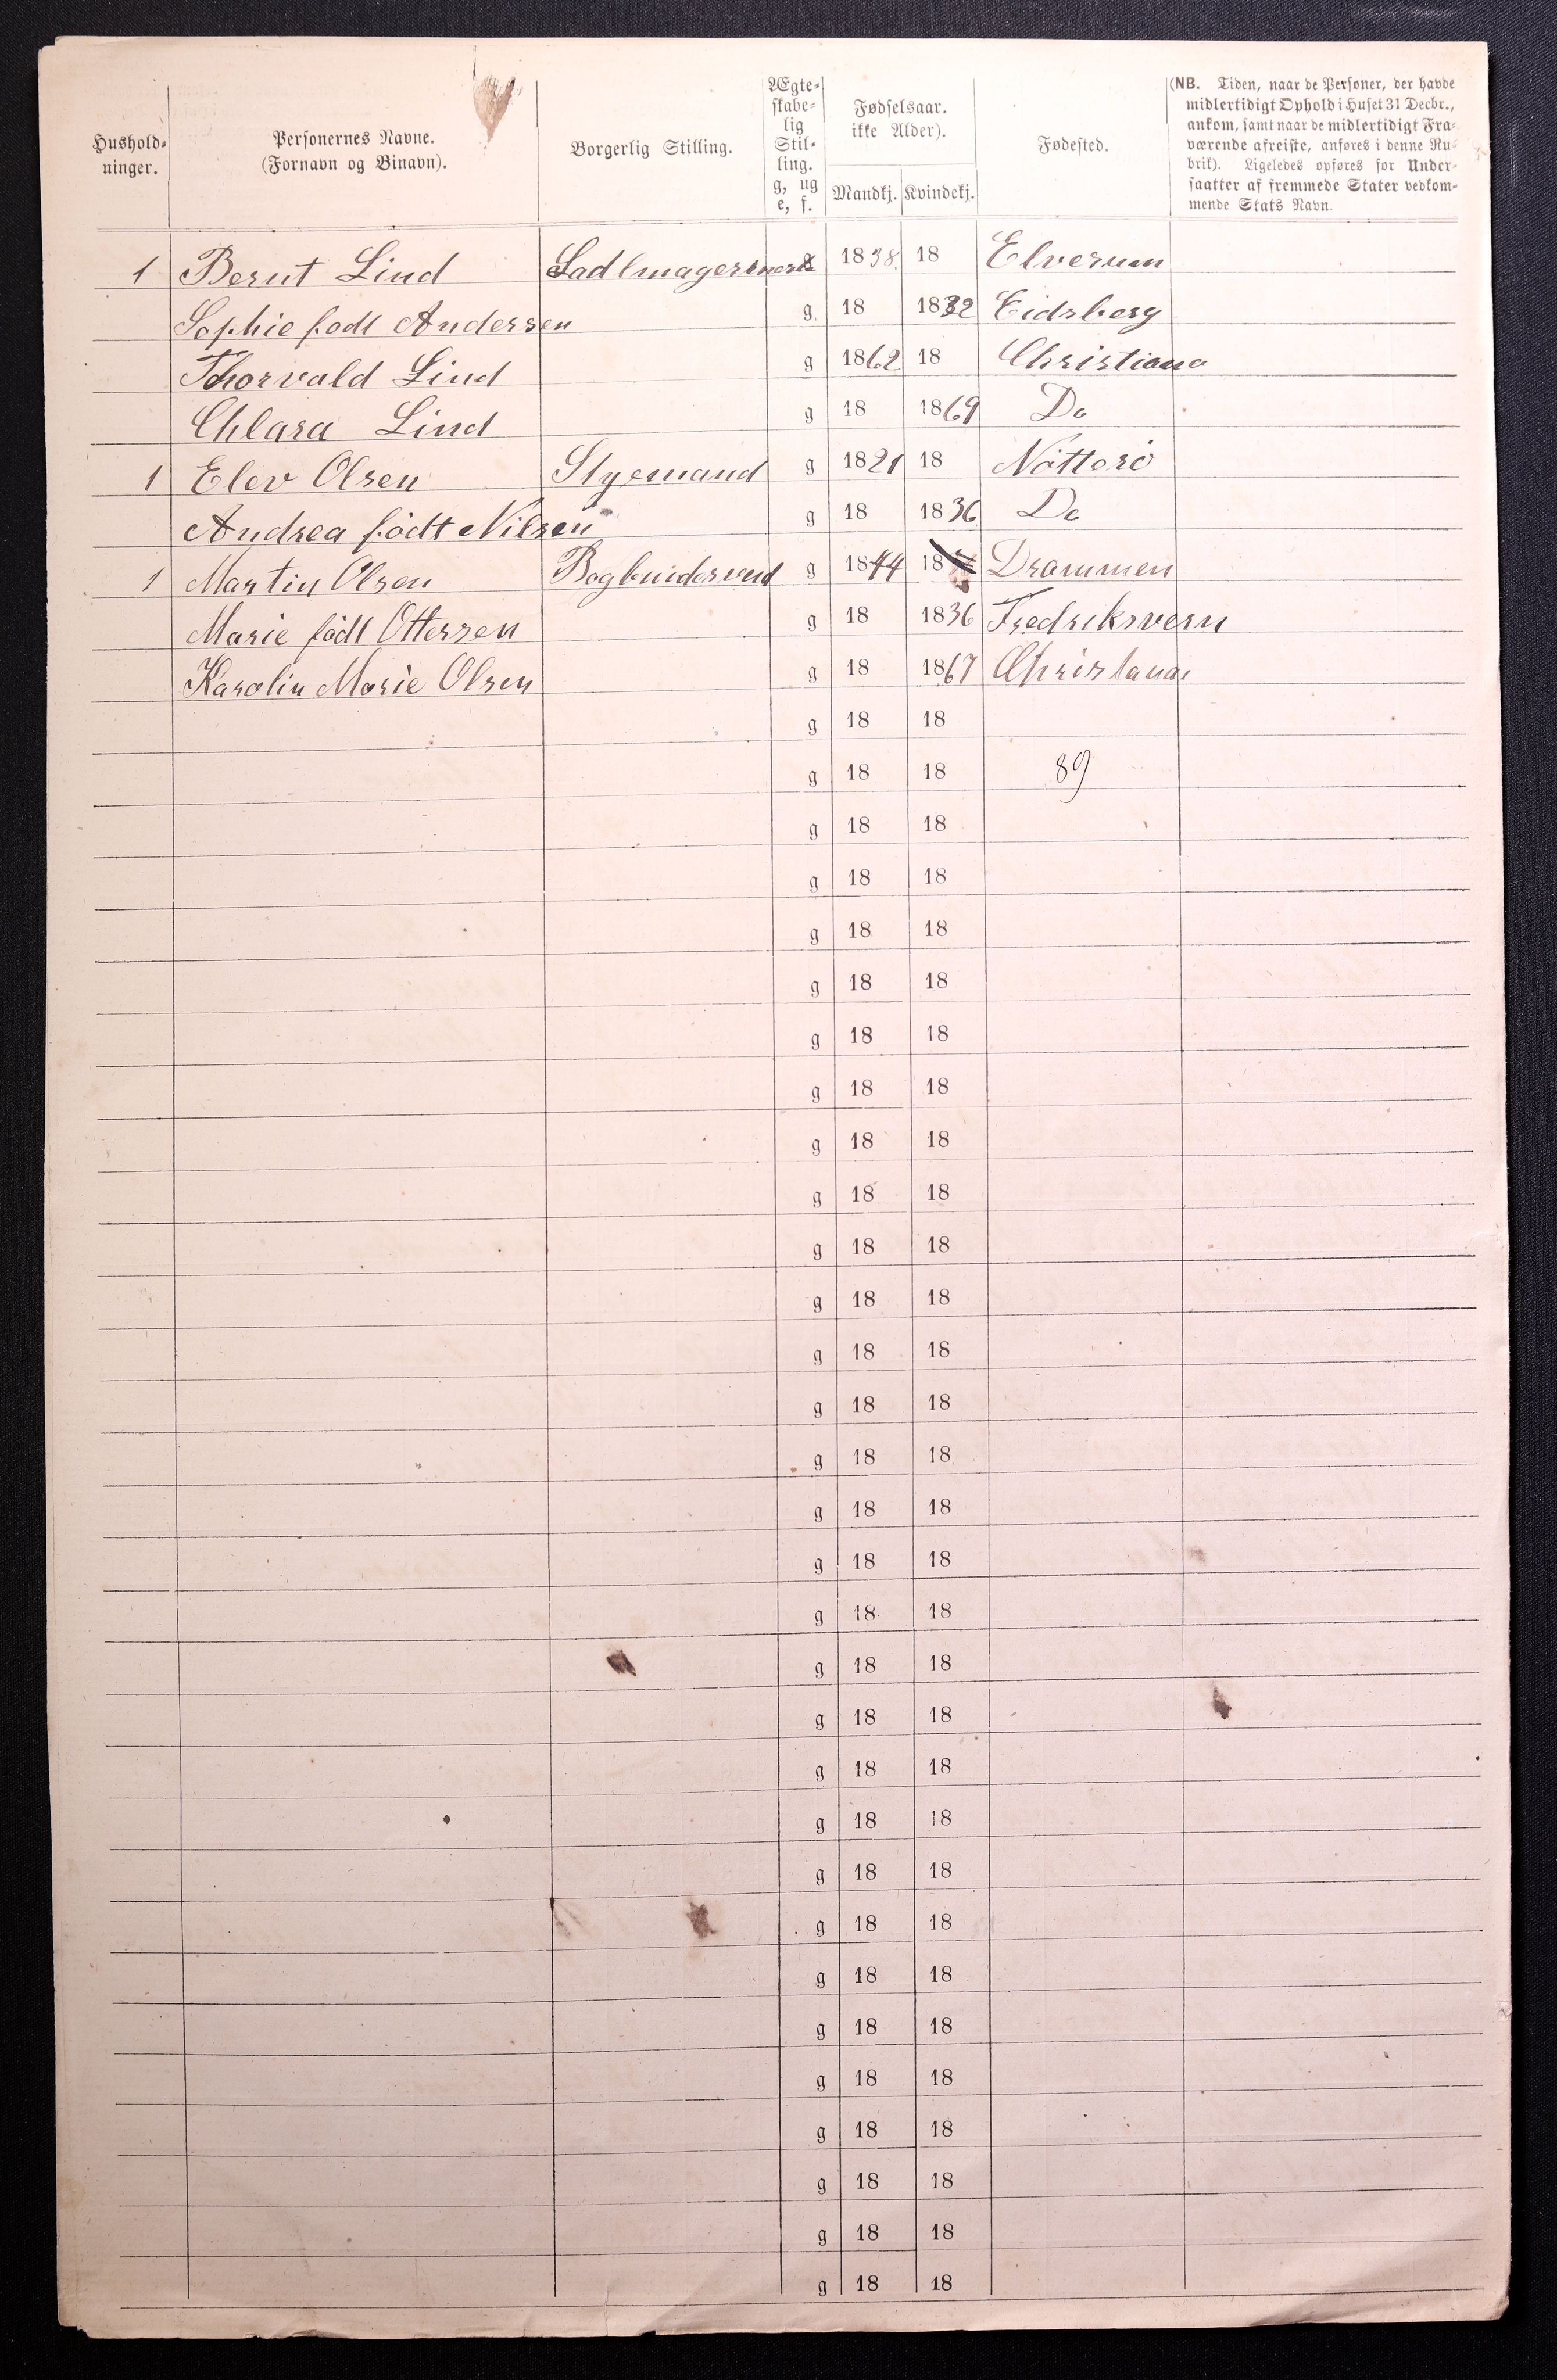 Hushold-
ninger.
Personernes Navne.
(Fornavn og Binavn).
Borgerlig Stilling.
Ægte-
skabe-
lig
Stil-
ling.
g, ug
e, f.
Fødselsaar.
ikke Alder).
Mandkj. Kvindekj.
Fødested.
(NB. Tiden, naar de Personer, der havde
midlertidigt Ophold i Huset 31 Decbr.,
ankom, samt naar de midlertidigt Fra-
værende afreiste, anføres i denne Ru-
brik). Ligeledes opføres for Under-
saatter af fremmede Stater vedkom-
mende Stats Navn.
1 Bernt Lind g 1838 18 Elverum
Sophie født Andersen g 18 1832 Eidsberg
Thorvald Lind g 1862 18 Christiana
Chlara Lind g 18 1869 Do
1 Elev Olsen Styemand g 1821 18 Nöttorö
Andrea födt Nilsen g 18 1836 Do
1 Martin Olsen g 1844 18 Drammen
Marie födt Ottersen g 18 1836 Fredriksvern
Karolin Marie Olsen g 18 1867 Christana
g 18 18
g 18 18 89
g 18 18
g 18 18
g 18 18
g 18 18
g 18 18
g 18 18
g 18 18
g 18 18
g 18 18
g 18 18
g 18 18
g 18 18
g 18 18
g 18 18
g 18 18
g 18 18
g 18 18
g 18 18
g 18 18
g 18 18
g 18 18
g 18 18
g 18 18
g 18 18
g 18 18
g 18 18
g 18 18
g 18 18
g 18 18